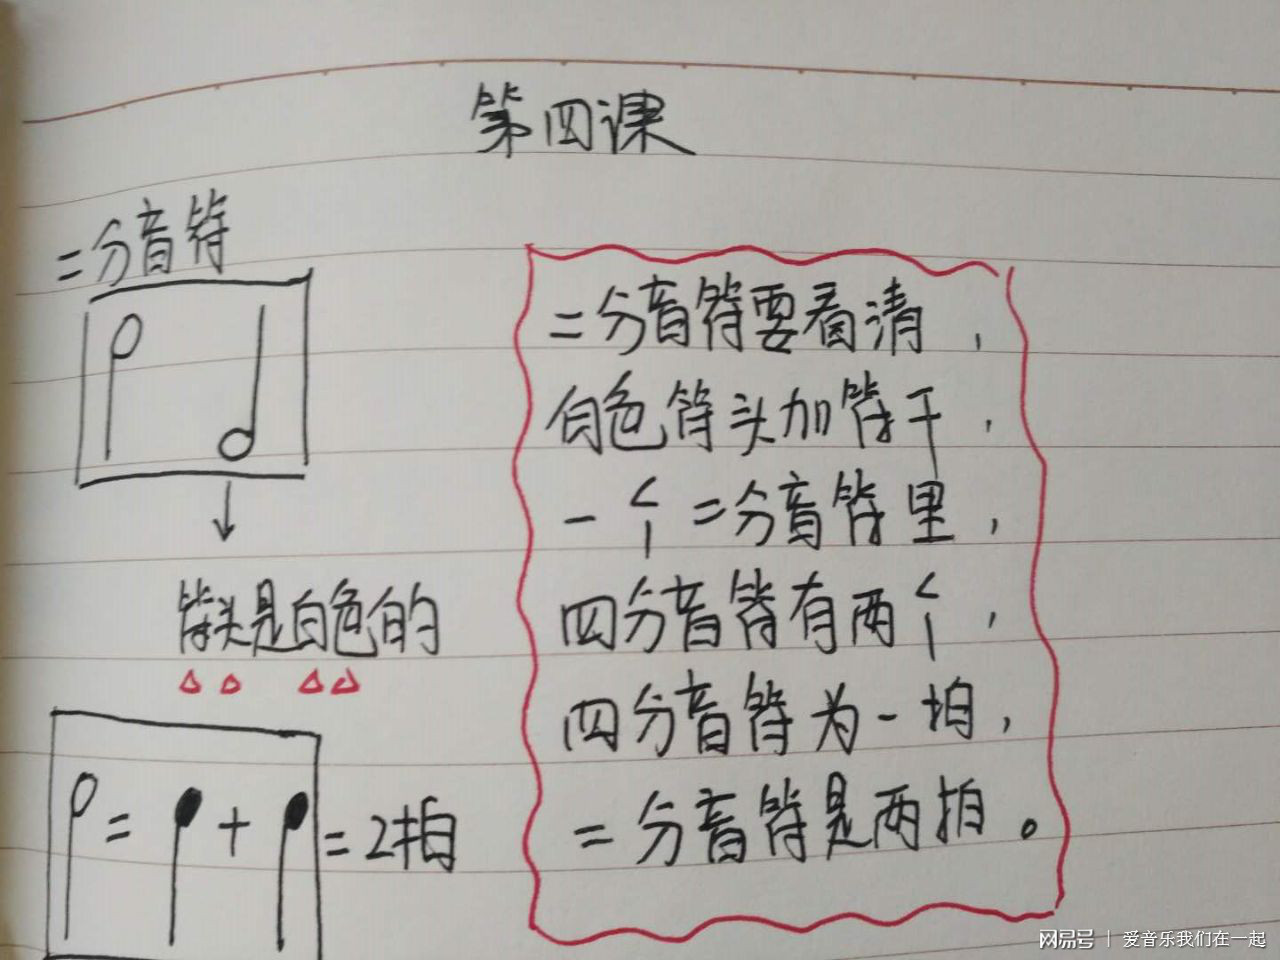 第四课
二分音符
符头是白色的
= + = 2拍
二分音符要看清，
白色符头加符干，
一个二分音符里，
四分音符有两个，
四分音符为一拍，
二分音符是两拍。
网易号 | 爱音乐我们在一起